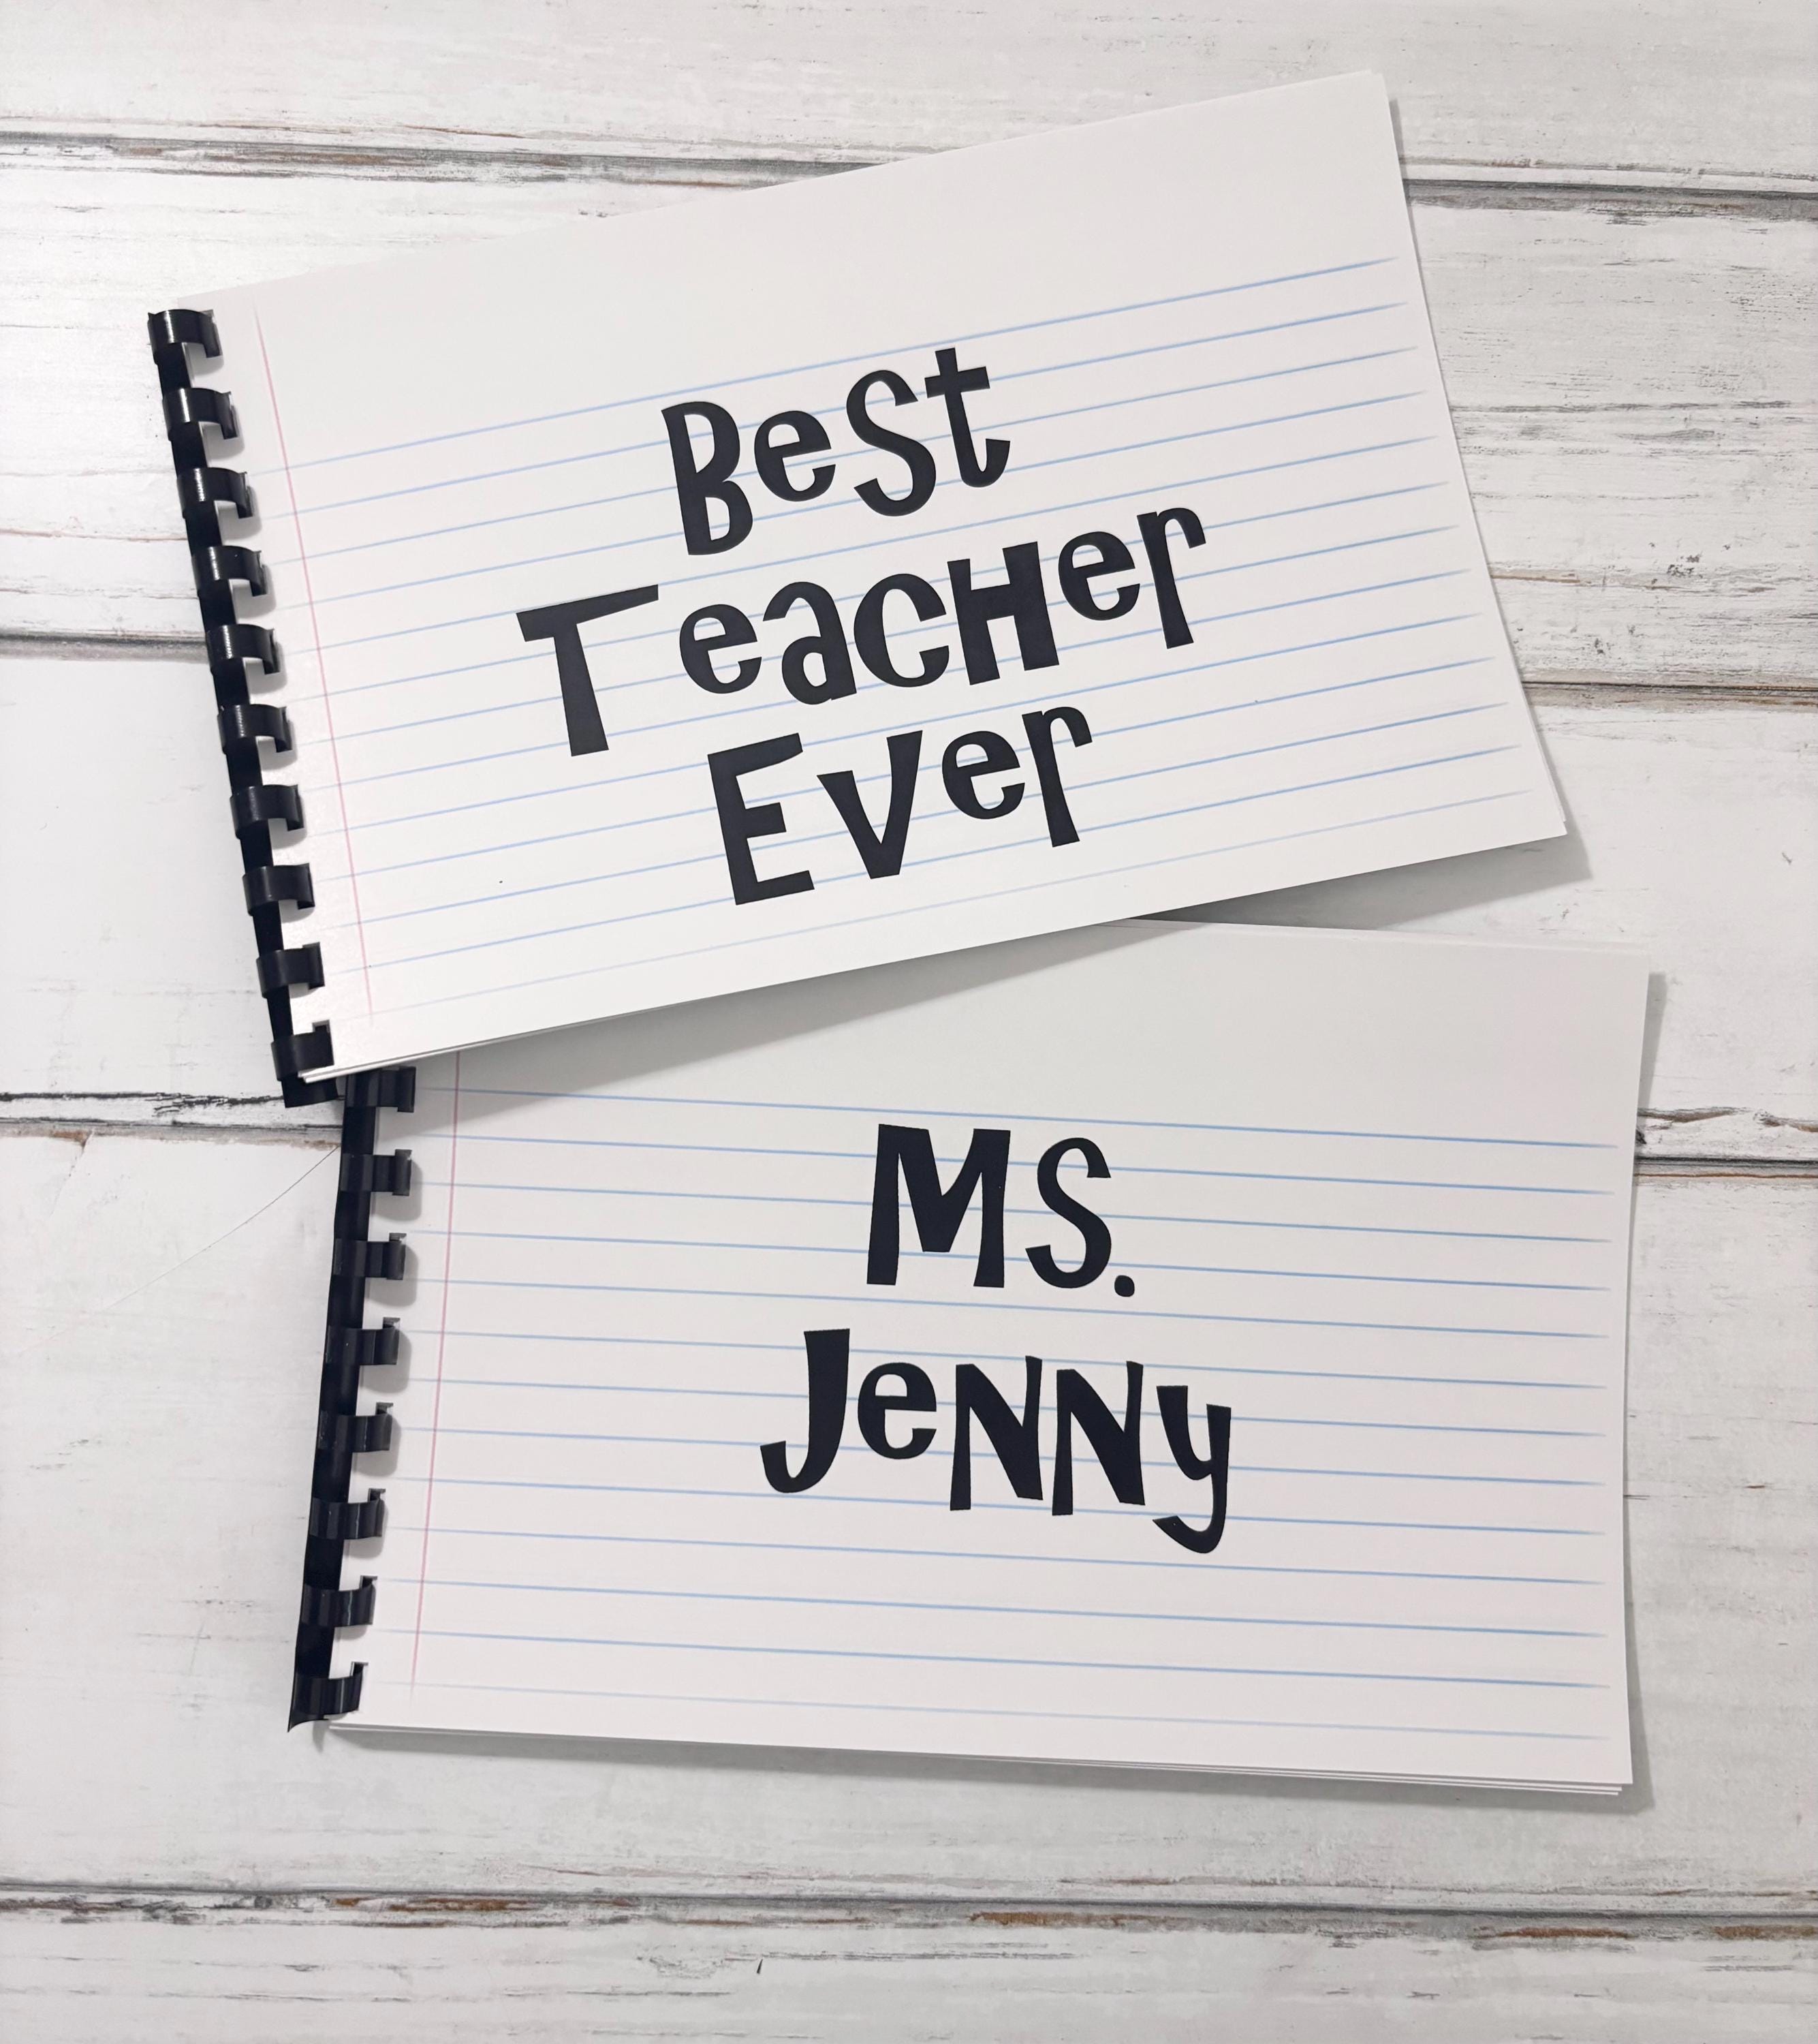 Best
Teacher
Ever
Ms.
Jenny